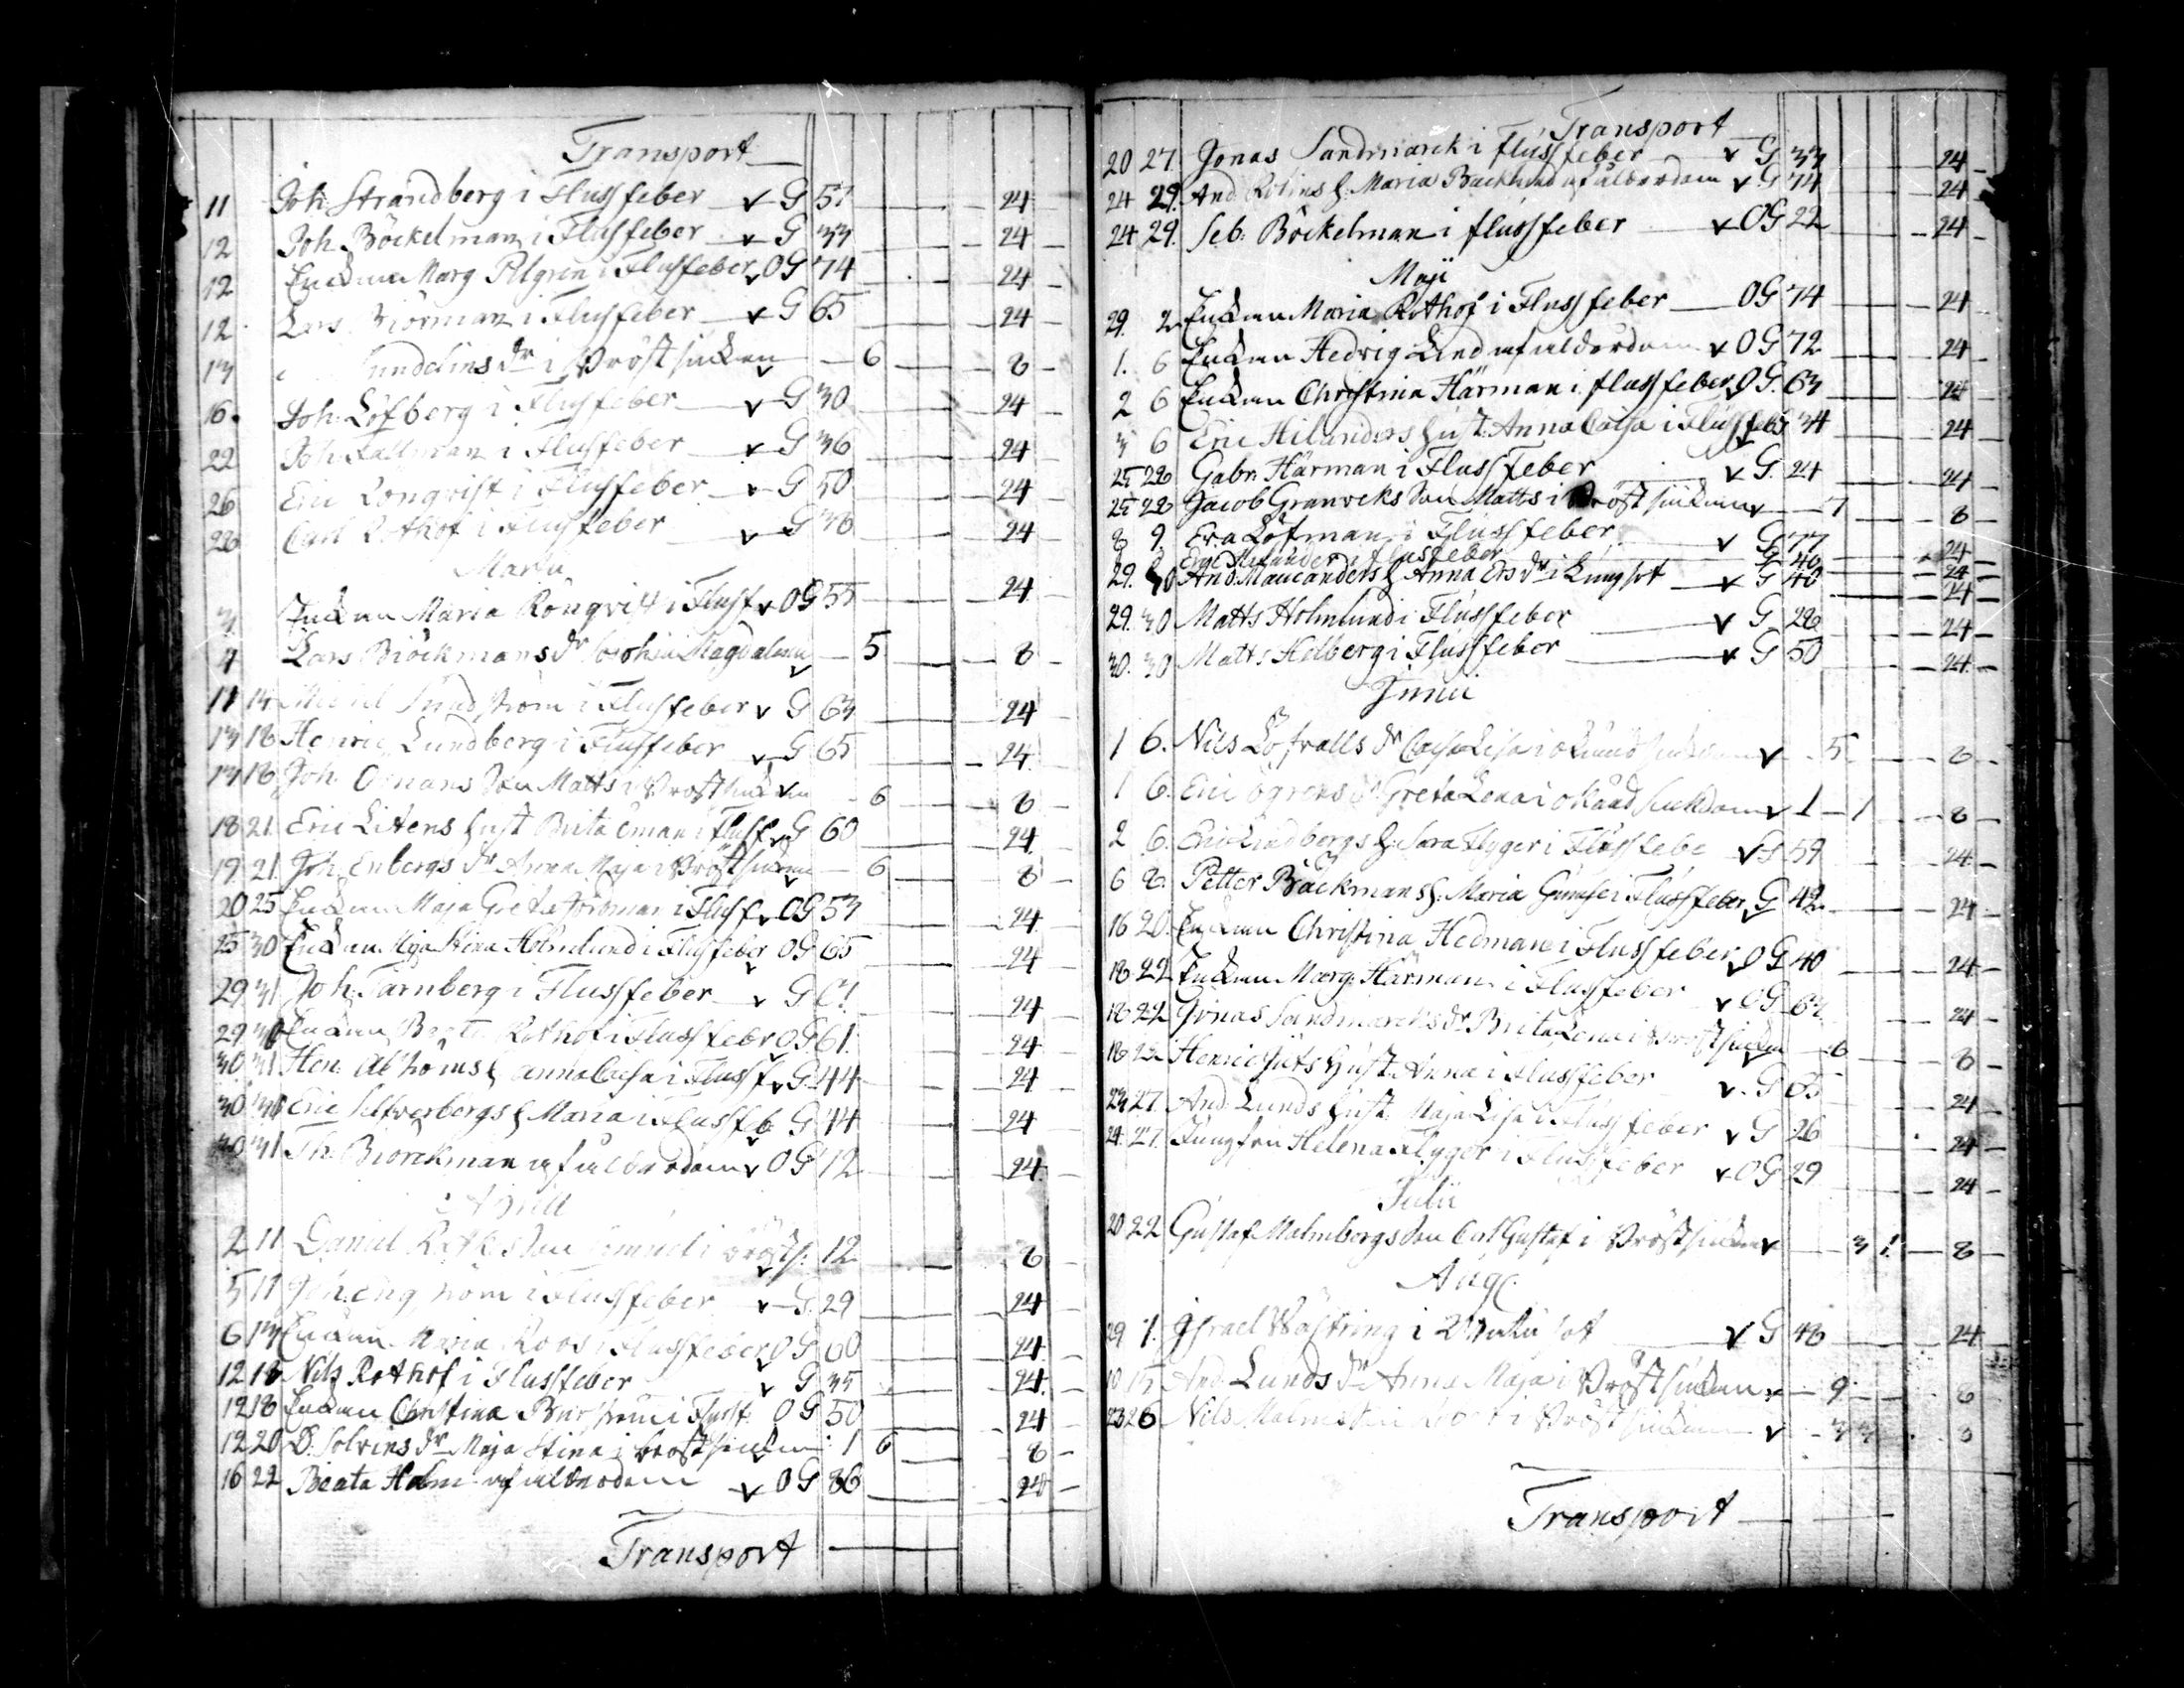 Transport
11 Joh Strandberg i Flussfeber v G 51 24
12 Joh. Böckelman i Flussfeber v G 33 24
12 Enckan Marg Pilgren i Flussfeber v OG 74 24
12 Lars Biörman i Flussfeber v G 65 24
13 Sundelins dr i Bröstsiukan v 6 8
16. Joh. Löfberg i Flussfeber v G 30 24
22 Joh. Källman i Flussfeber v G 36 24
26 Eric Lonqvist i Flussfeber v G 50 24
28 Carl Rothof i Flussfeber v G 36 24
Martii
3 Enckan Maria Rönqvist i Flussf v OG 55 24
4 Lars Biöckmans dr Sophia Magdalena v 5 8
11 14 Michel Sundström i Flussfeber v G 63 24
13 18 Henric Lundberg i Flussfeber v G 65 24
13 18 Joh Osmans Son Matts i Bröstsiukan v 6 8
18 21 Eric Litens hust Brita i Flussf v G 60 24
19 21 Joh Enbergs dr Anna Maja i Bröstsiukan v 6 8
20 25 Enckan Maja Greta i Flussf v OG 53 24
25 30 Enckan Maja Stina Holmlund i Flussfeber v OG 65 24
29 31 Joh. Tarnberg i Flussfeber v G 24
29 30 Enckan Rothof i Flussfeber v OG 61 24
30 31 Hen. Ahlströms h Anna Caisa i Flussf v G 44 24
30 31 Eric Silfverbergs h Maria i Flussfeb v G 44 24
30 31 Th. Biörckman af ålderdom v OG 12 24
Aprill
2 11 Daniel Roths Son Samuel i brösts. v 12 8
5 11 Joh. Engström i Flussfeber v G. 29 24
6 13 Enckan Maria Roos i Flussfeber v OG 60 24
12 18 Nils Rothof i Flussfeber v G 35 24
12 18 Enckan Christina i Flussf. OG 50 24
12 20 D. Solvins dr Maja Stina i bröstsiukan 1 6 8
16 22 Beata Holm af ålderdom v OG 86 24
Transport
Transport
20 27 Jonas Sandmarck i Flussfeber v G 33 24
24 29. And Rolins h. Maria Backlund af ålderdom v G 74 24
24 29. Seb. Böckelman i flussfeber v OG 22 24
Maji
29. 2 Enckan Maria Rothof i Flussfeber OG 74 24
1. 6 Enckan Hedvig Lind af ålderdom v OG 72 24
2 6 Enckan Christina Härman i flussfeber v OG. 63 24
3 6 Eric Hilanders hust. Anna Caisa i Flussfeb G 34 24
25 28 Gabr. Härman i Flussfeber v G. 24 24
25 28 Jacob Granveks Son Matts i Bröstsiukan v 7 8
8 9. Eva Löfman i Flussfeber v G 77 24
Eric Hilander i flussfeber G 40 24
29. 30 And. Maucanders h Anna Ers dr i Lungsot v G 40 24
29. 30 Matts Holmlund i Flussfeber v G 28 24
30. 30 Matts Helberg i Flussfeber v G 50 24
Junii
1 6. Nils Löfvalls dr Caisa Lisa i okänd siukdom v 5 8
1 6. Eric Ögrens dr Greta Lena i okänd siukdom v 1 1 8
2 6. Eric Lindbergs h. Sara Flyger i Flussfebe v G 59 24
6 8. Petter Bäckmans h. Maria i Flussfeber v G 42 24
16 20. Enckan Christina Hedman i Flussfeber v OG 40 24
18 22 Enckan Marg. Härman i Flussfeber v OG 63 24
18 22 Jonas Sandmarcks dr Brita Lena i bröstsiukan 6 8
18 22 Henric hust Anna i Flussfeber v G 65 24
23 27. And. Lunds hust Maja Lisa i Flussfeber v G 26 24
24. 27. Jungfru Helena Flyger i Flussfeber v OG 29 24
Julii
20 22 Gustaf Malmbergs Son Carl Gustaf i Bröstsiukan v 3 1 8
Aug.
29 1. Israel Wästring i sot v G 48 24
10 15 And Lunds dr Anna Maja i Bröstsiukan v 9 8
23 26 Nils i Bröstsiukan v 3 3 8
Transport